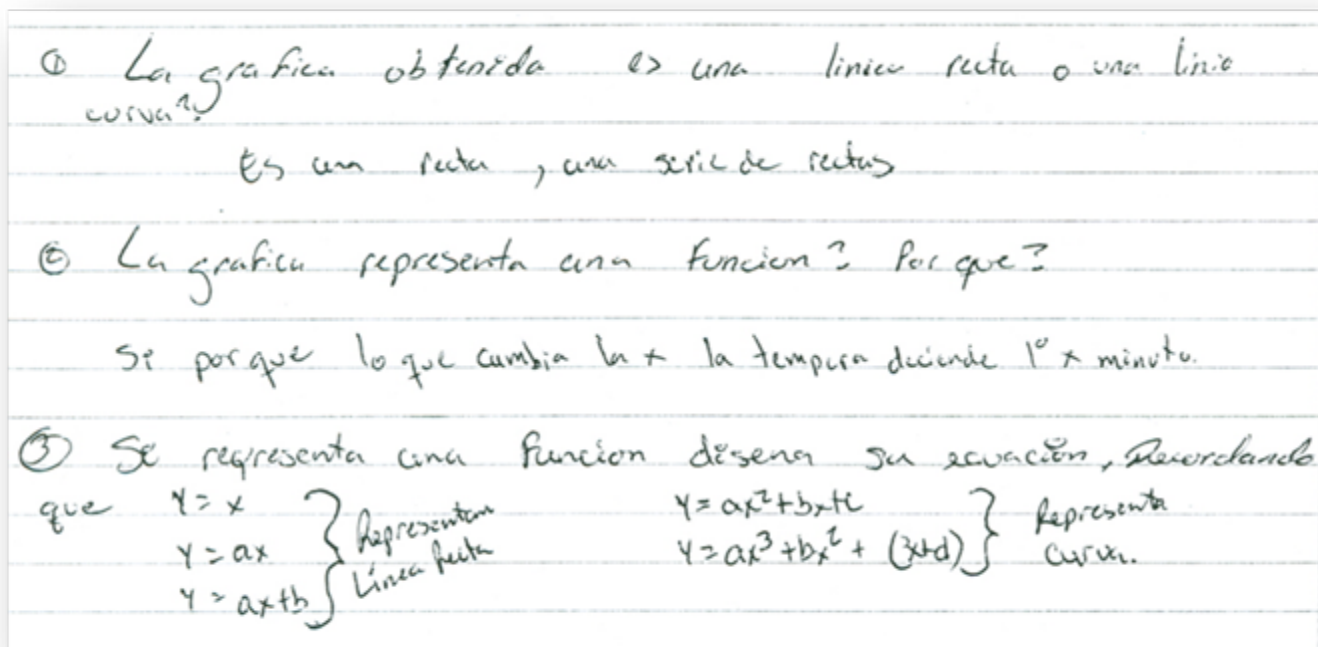 ① La grafica obtenida es una linica recta o una linia
curva?
Es una recta, una serie de rectas
② La grafica representa una funcion? Por que?
Si porque lo que cambia la x la tempera deciende 1° x minuto.
③ Si representa una funcion disena su ecuación, Recordando
que y = x y = ax²+bx+c
y = ax } Representan Linea Recta y = ax³+bx²+(3x+d) } Representa curva.
y = ax+b